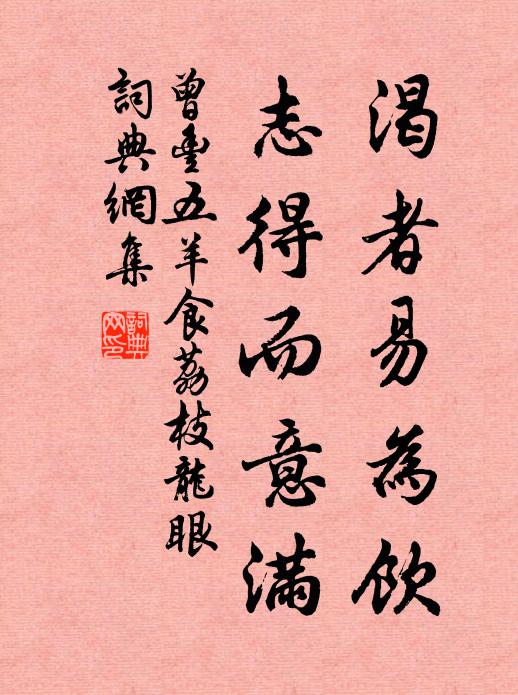 渴者易為飲
志得而意滿
曾豐五羊食荔枝龍眼
詞典網集
詞典
网印